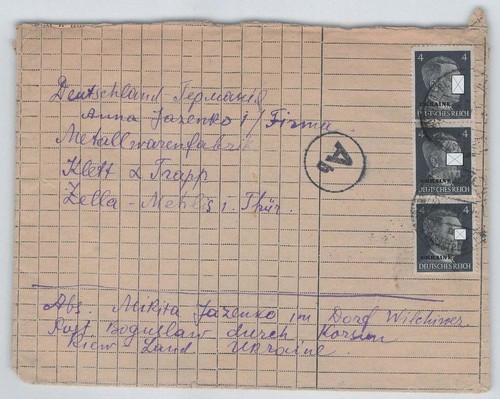 Deutschland-Германія
Anna Jazenko i/ Firma
Metallwarenfabrik
Klett & Trapp
Zella-Mehlis i. Thür.
Ab
4 4
UKRAINE
DEUTSCHES REICH
4 4
UKRAINE
DEUTSCHES REICH
4 4
UKRAINE
DEUTSCHES REICH
Abs. Mikita Jazenko im Dorf
Post Boguslaw durch Korsun
Kiew Land Ukraine.